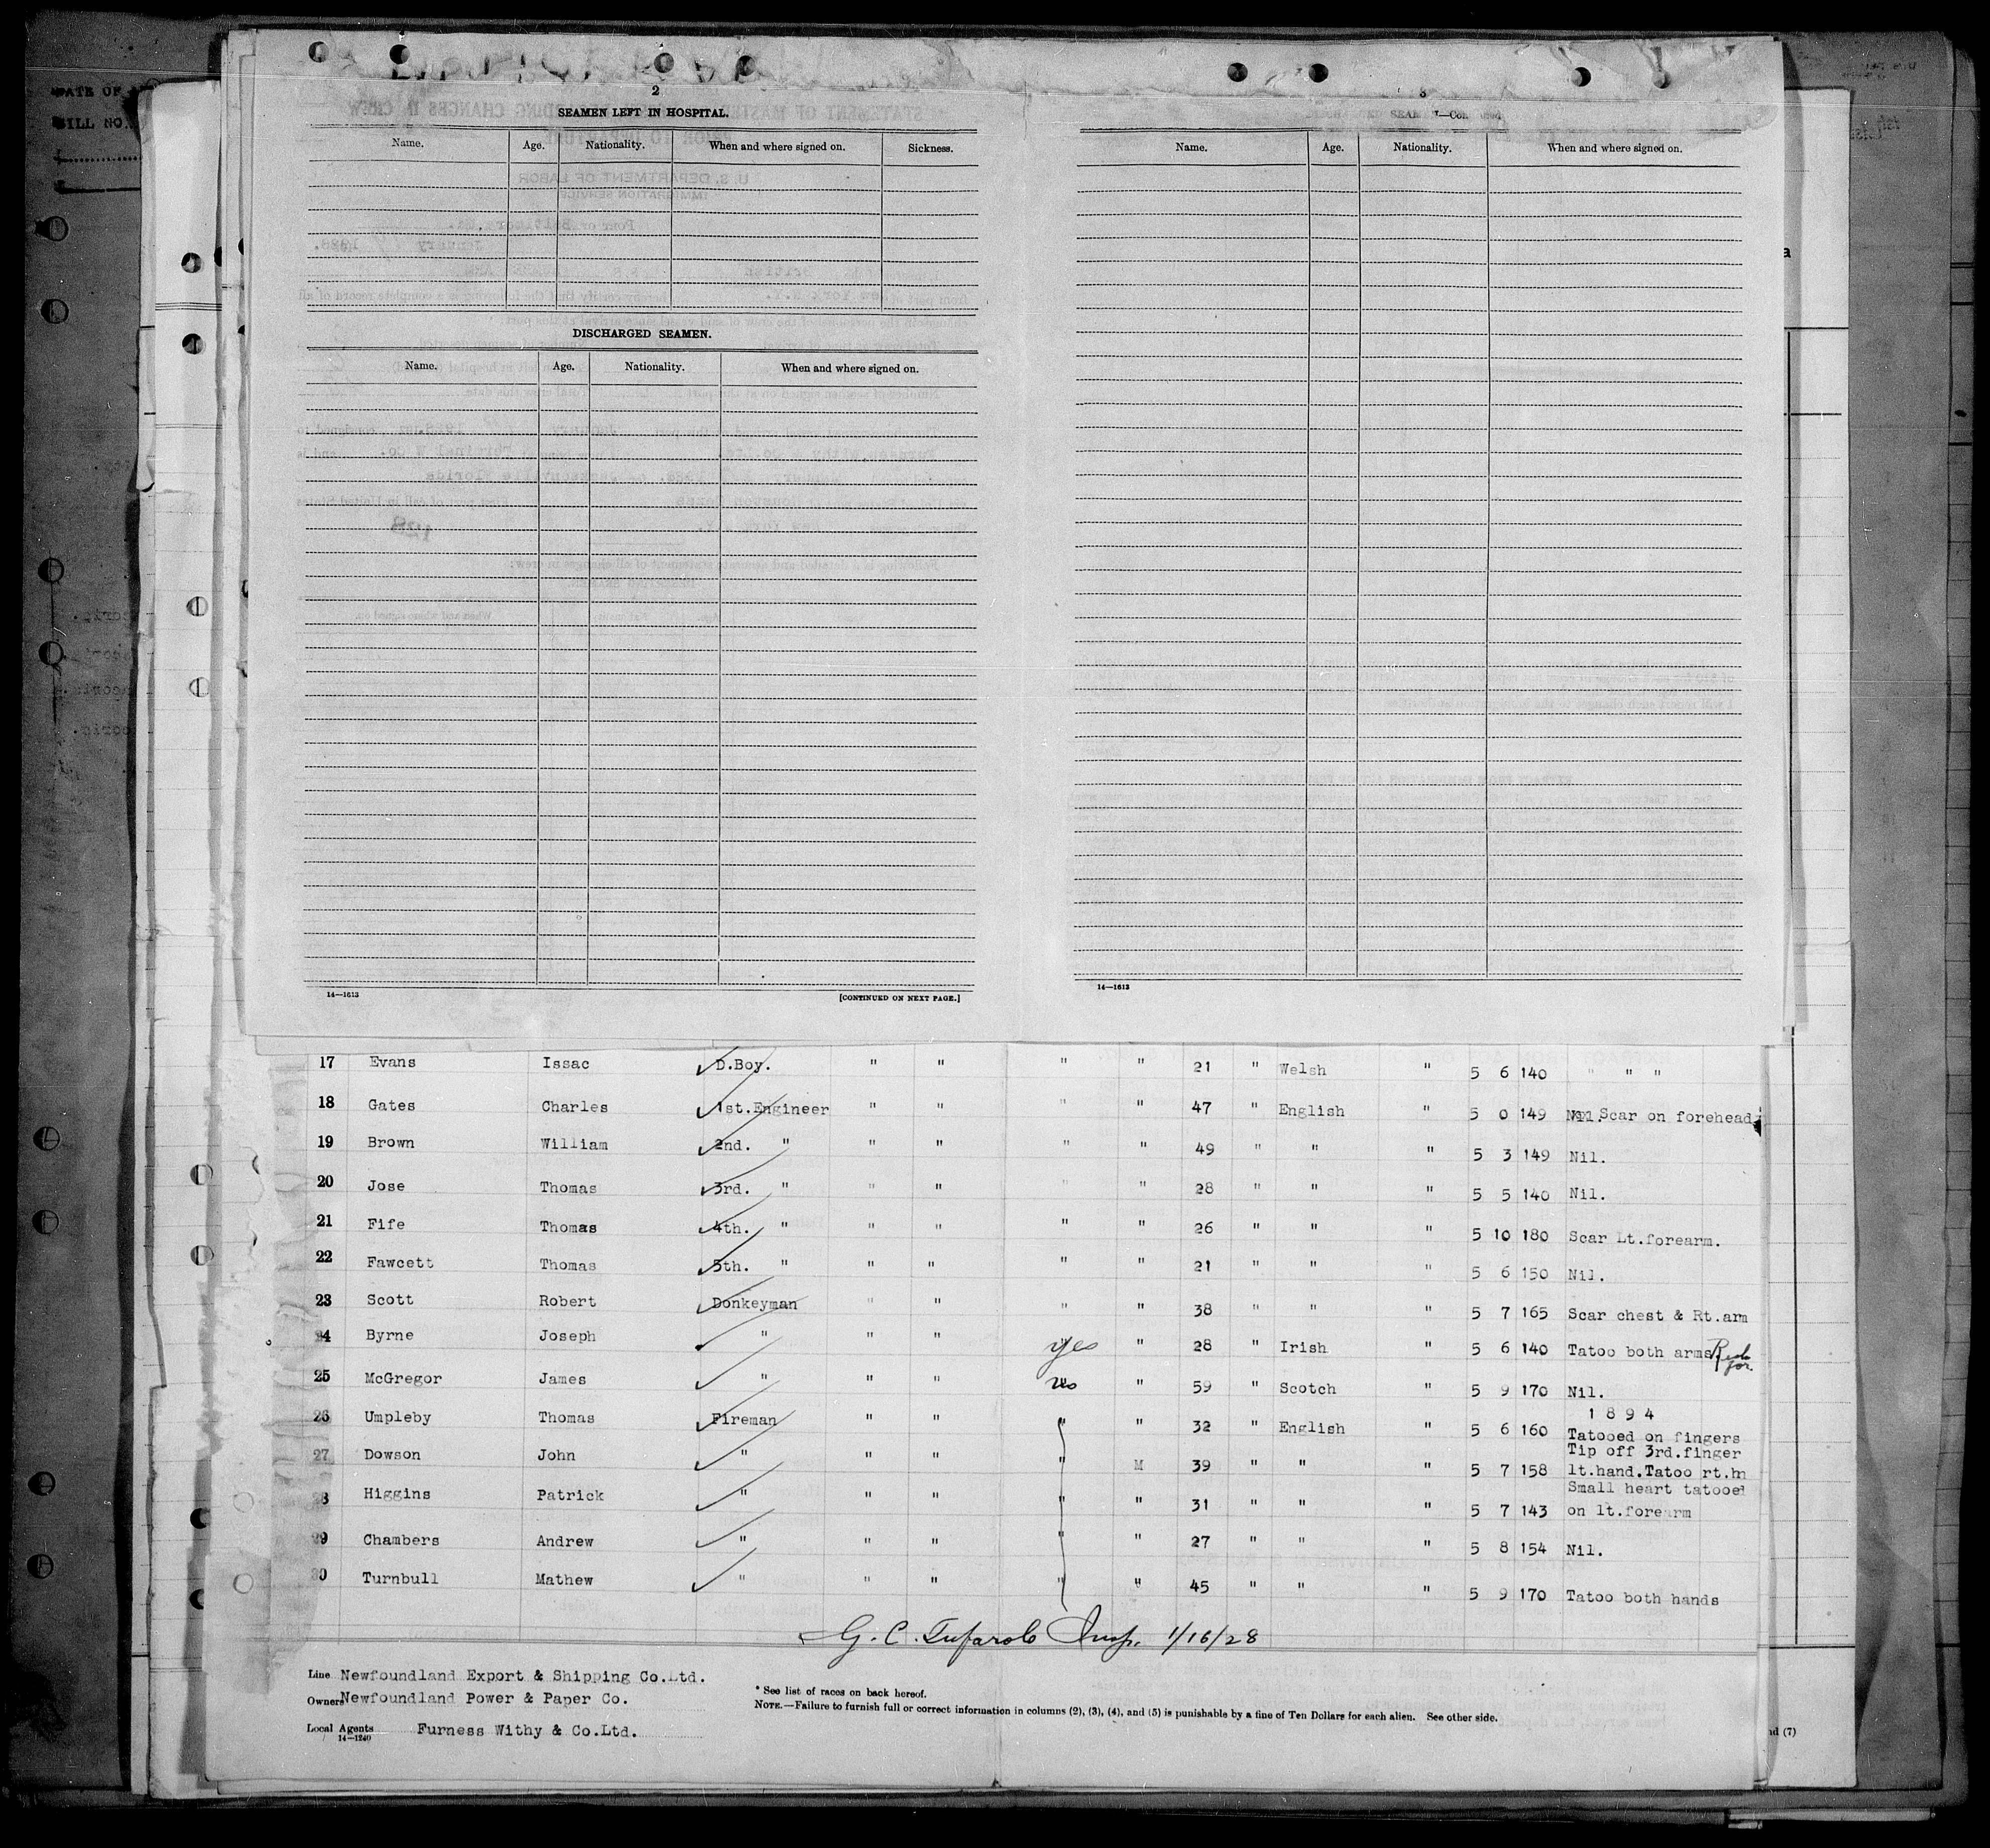 2
SEAMEN LEFT IN HOSPITAL.
Name. Age. Nationality. When and where signed on. Sickness.
DISCHARGED SEAMEN.
Name. Age. Nationality. When and where signed on.
14—1613 [CONTINUED ON NEXT PAGE.]
3
Name. Age. Nationality. When and where signed on.
14—1613
17 Evans Issac D.Boy. " " " " 21 " Welsh " 5 6 140 " " "
18 Gates Charles 1st.Engineer " " " " 47 " English " 5 0 149 Scar on forehead
19 Brown William 2nd. " " " " " 49 " " " 5 3 149 Nil.
20 Jose Thomas 3rd. " " " " " 28 " " " 5 5 140 Nil.
21 Fife Thomas 4th. " " " " " 26 " " " 5 10 180 Scar Lt.forearm.
22 Fawcett Thomas 5th. " " " " " 21 " " " 5 6 150 Nil.
23 Scott Robert Donkeyman " " " " 38 " " " 5 7 165 Scar chest & Rt.arm
24 Byrne Joseph " " " yes " 28 " Irish " 5 6 140 Tatoo both arms
25 McGregor James " " " " 59 " Scotch " 5 9 170 Nil.
26 Umpleby Thomas Fireman " " " " 32 " English " 5 6 160 1 8 9 4
Tatooed on fingers
27 Dowson John " " " " M 39 " " " 5 7 158 Tip off 3rd.finger
lt.hand.Tatoo rt.h
28 Higgins Patrick " " " " " 31 " " " 5 7 143 Small heart tatooed
on lt.forearm
29 Chambers Andrew " " " " " 27 " " " 5 8 154 Nil.
30 Turnbull Mathew " " " " " 45 " " " 5 9 170 Tatoo both hands
G. C. Tufarolo Insp. 1/16/28
Line Newfoundland Export & Shipping Co.Ltd.
Owners Newfoundland Power & Paper Co.
Local Agents Furness Withy & Co.Ltd.
14—1240
* See list of races on back hereof.
NOTE.—Failure to furnish full or correct information in columns (2), (3), (4), and (5) is punishable by a fine of Ten Dollars for each alien. See other side.